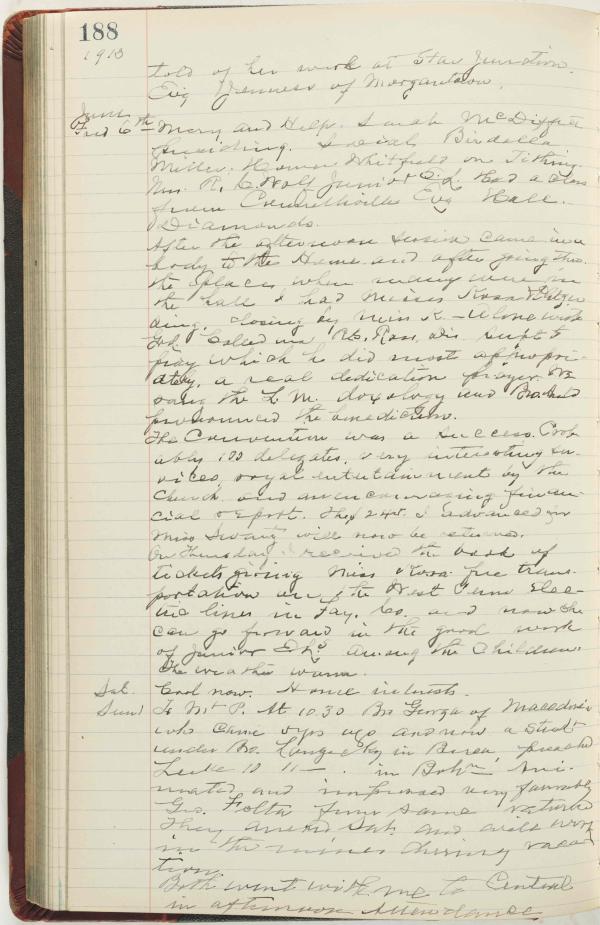 188
1913
told of her work at Star Junction.
Evg Yenness of Morgantown.
June
Fri 6th Mary and Help. Sarah McDiffitt
presiding. Social Birdella
Miller. Homer Whitfield on Tithing.
Mrs. R. C. Wolf Junior C. E. Had a class
from Connellsville Evg Hall.
Diamonds.
After the afternoon session came in a
body to the Home and after going thro
the places, when many were in
the hall I had Misses Rosa &
closing by Miss K
Called on Rev. Ross, Dis. Supt to
pray which he did most appropri-
ately, a real dedication prayer. We
sang the L. M. doxology and Bro.
pronounced the benediction.
The Convention was a success. Prob
ably 100 delegates, very interesting ser-
vices, royal entertainment by the
church and an encouraging finan-
cial report. The $24. I advanced for
Miss will now be returned.
On Thursday I received the book of
tickets giving Miss Rosa free trans-
portation on the West Penn Elec-
tric lines in Fay. Co. and now she
can go forward in the good work
of Junior among the Children.
The weather warm.
Sat. Cool now. Home interests.
Sund To Mt P. At 10.30 Bro Gorza of Macedonia
who came yrs ago and now a student
under Bro. in Berea, preached
Luke 10 11 — . in Bohm. Ani-
mated and impressed very favorably
Geo. Folta from same returned
They arrived Sat. and will work
in the mines during vaca
tion.
Both went with me to Central
in afternoon Attendance